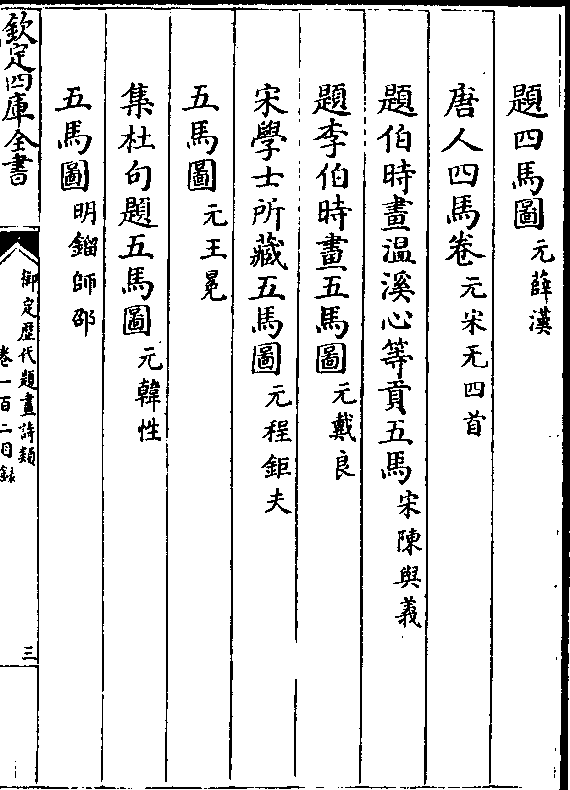 題四馬圖元薛漢
唐人四馬卷元宋无四首
題伯時畫温溪心等貢五馬宋陳與義
題李伯時畫五馬圖元戴良
宋學士所藏五馬圖元程鉅夫
五馬圖元王冕
集杜句題五馬圖元韓性
五馬圖明鎦師邵
欽定四庫全書
御定歴代題畫詩類
卷一百二目錄
三